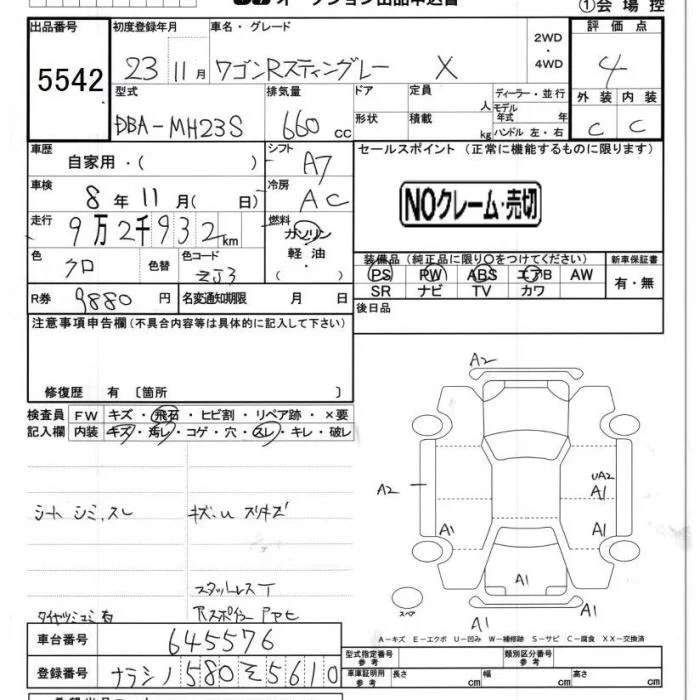 ①会場控
出品番号 初度登録年月 車名・グレード 2WD・4WD 評価点
5542 23 11月 ワゴンRスティングレー X 4
型式 排気量 ドア 定員 人 ディーラー・並行 外装 内装
DBA-MH23S 660cc 形状 積載 kg モデル年式 年 ハンドル 左・右 C C
車歴 自家用・( ) シフト A7 セールスポイント (正常に機能するものに限ります)
車検 8年11月( 日) 冷房 AC
NOクレーム・売切
走行 9万2千932km 燃料 ガソリン・軽油・( )
色 クロ 色替 色コード ZJ3
装備品 (純正品に限り○をつけてください) 新車保証書
PS PW ABS エアB AW 有・無
SR ナビ TV カワ
R券 9880円 名変通知期限 月 日
後日品
注意事項申告欄(不具合内容等は具体的に記入して下さい)
修復歴 有 〔箇所 〕
検査員記入欄 FW キズ・飛石・ヒビ割・リペア跡・×要
内装 キズ・汚レ・コゲ・穴・スレ・キレ・破レ
シート シミ、スレ キズ.U スリキズ
A2
A2
UA2
A1
A1 A1
A1
スペア
A1 A1
A-キズ E-エクボ U-凹み W-補修跡 S-サビ C-腐食 XX-交換済
車台番号 645576
型式指定番号 参考 類別区分番号 参考
登録番号 ナラシノ 580 そ 5610
車庫証明用 参考 長さ cm 幅 cm 高さ cm